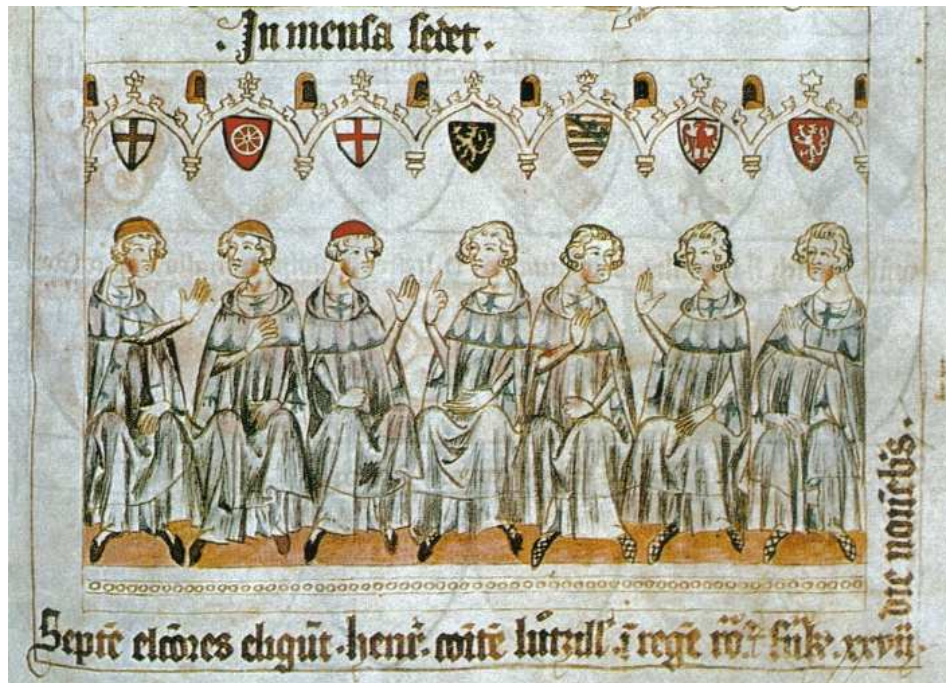 . In mensa sedet .
Septē elc̄ores eligūt . henr̄ . cōitē lutzill' ī regē rō . xxvii .
die nouēb's .